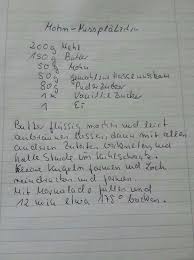 Mohn-Nussplätzchen
200g Mehl
150g Butter
50g Mohn
50g gemahlene Haselnüsse
80g Puderzucker
1x Vanille Zucker
1 Ei
Butter flüssig machen und leicht
anbräunen lassen, dann mit allen
anderen Zutaten verkneten und
halbe Stunde im Kühlschrank.
Kleine Kugeln formen und Loch
reindrücken und formen.
Mit Marmelade füllen und
12 min etwa 175° backen.